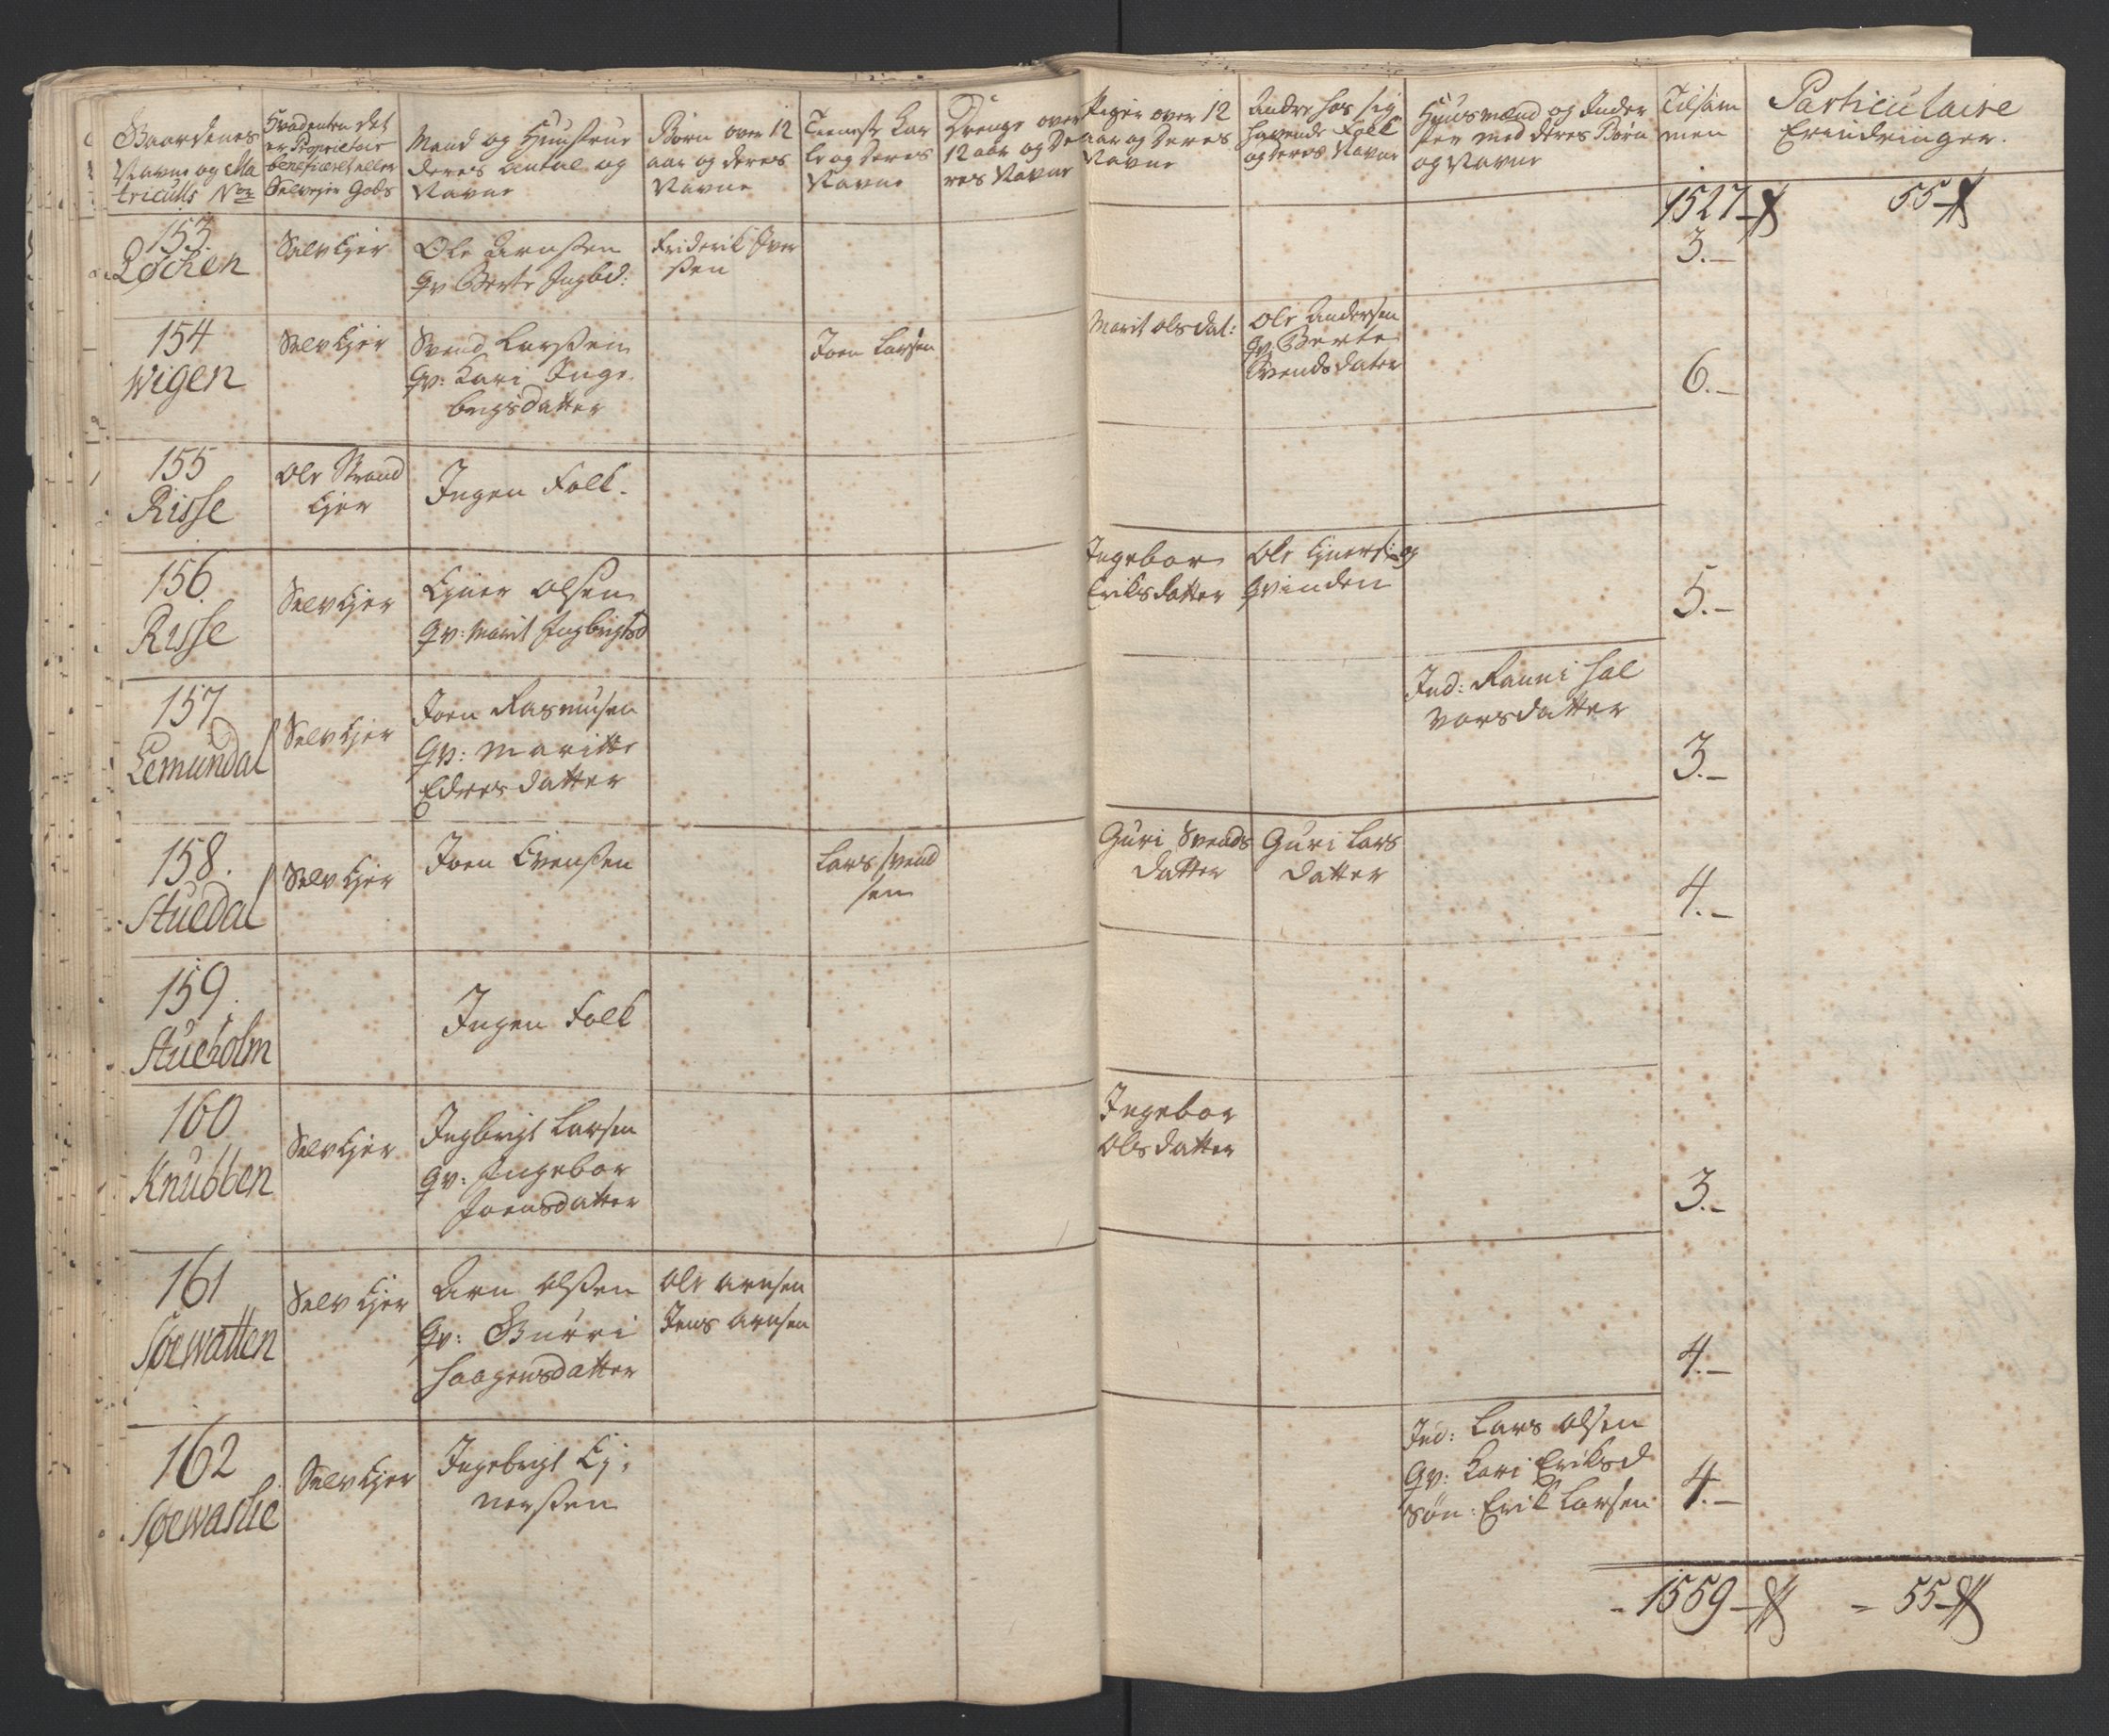 Gaardenes
Navne og Ma
triculls No
Hvadenten det
er Proprietair
beneficeret eller
Selvejer Gods
Mand og Hünstrue
deres antal og
Navne
Børn over 12
aar og deres
Navne
Tieneste Kar
le og deres
Navne
Drenge over
12 aar og De
res Navne
Piger over 12
aar og Deres
Navne
Andre hos sig
havende Folk
og deres Navne
Huusmænd og Inder
ster med deres Børn
og Navne
Tilsam
men
Particulaire
Erindringer.
1527 55
153.
Løchen
Selv Ejer
Ole Arnssen
Qv Berte Ingbd:
Friderik Iver
ssen
3.-
154
Wigen
Selv Ejer
Svend Larssen
Qv: Kari Inge
brigsdatter
Joen Larsen
Marit olsdat:
Ole Andersen
Qv Berte
Svends dater
6.-
155
Risse
Ole Strand
Ejer
Ingen Folk.
156.
Risse
Selv Ejer
Ejner olsen
Qv: Marit Ingbrigtsd
Ingebor
Eriksdatter
Ole Ejners: og
Qvinden
5.-
157
Lemundal
Selv Ejer
Joen Rasmusen
Qv: Maritte
Edresdatter
Ind: Ranni Hal
vorsdatter
3.-
158.
Stuedal
Selv Ejer
Joen Evenssen
Lars Svend
sen
Guri Svends
datter
Guri Lars
datter
4.-
159.
Stueholm
Ingen Folk
160
Knubben
Selv Ejer
Ingbrigt Larsen
Qv: Ingebor
Joensdatter
Ingebor
Olsdatter
3.-
161
Søewatten
Selv Ejer
Arn olssen
Qv: Burri
Haagensdatter
Ole Arnsen
Jens Arnsen
4.-
162
Søewaslie
Selv Ejer
Ingebrigt Ej:
nerssen
Ind: Lars olsen
Qv: Kari Eriksd
Søn: Erik Larsen
4.-
- 1559 = 55